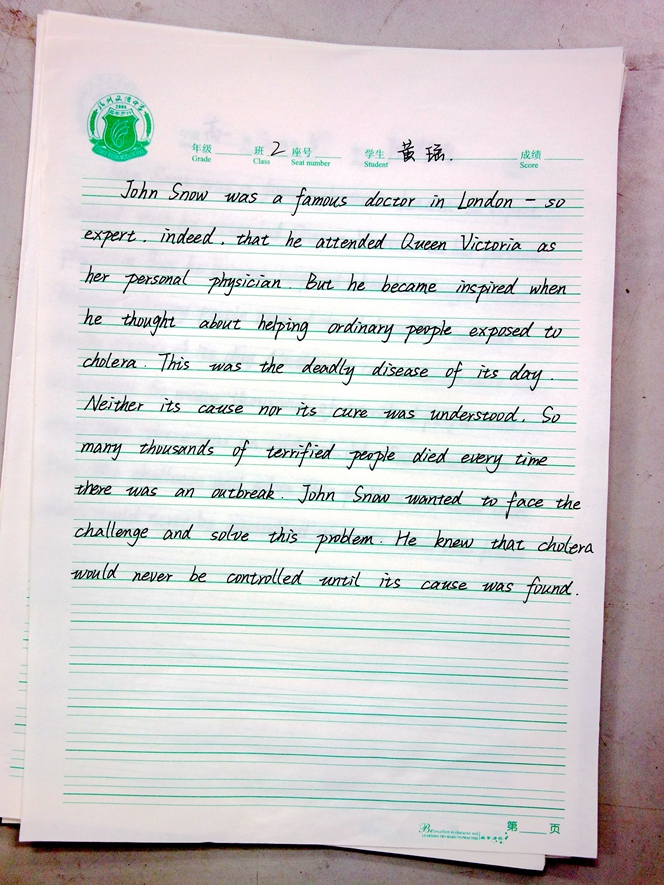 年级 班 2 座号 学生 黄瑶. 成绩
Grade Class Seat number Student Score
John Snow was a famous doctor in London - so
expert, indeed, that he attended Queen Victoria as
her personal physician. But he became inspired when
he thought about helping ordinary people exposed to
cholera. This was the deadly disease of its day.
Neither its cause nor its cure was understood. So
many thousands of terrified people died every time
there was an outbreak. John Snow wanted to face the
challenge and solve this problem. He knew that cholera
would never be controlled until its cause was found.
第 页